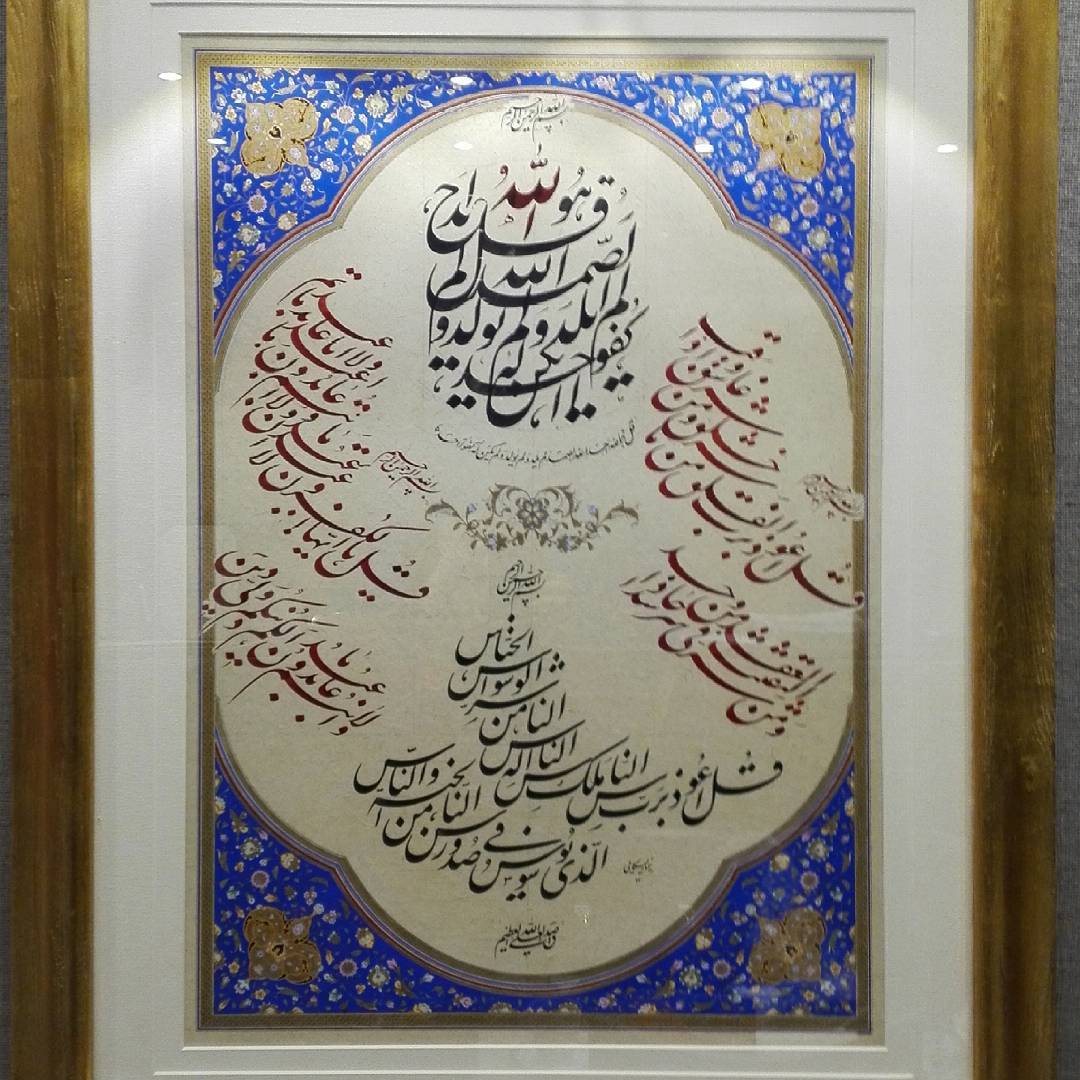 بسم الله الرحمن الرحیم
قل هو الله احد
الله الصمد
لم یلد ولم یولد
ولم یکن له کفوا احد
بسم الله الرحمن الرحیم
قل اعوذ برب الفلق من شر ما خلق ومن شر غاسق اذا وقب
ومن شر النفثت فی العقد ومن شر حاسد اذا حسد
بسم الله الرحمن الرحیم
قل یا ایها الکفرون لا اعبد ما تعبدون ولا انتم عابدون ما اعبد ولا انا عابد ما عبدتم
ولا انتم عابدون ما اعبد لکم دینکم ولی دین
بسم الله الرحمن الرحیم
قل اعوذ برب الناس ملک الناس اله الناس
من شر الوسواس الخناس
الذی یوسوس فی صدور الناس من الجنه والناس
صدق الله العلی العظیم